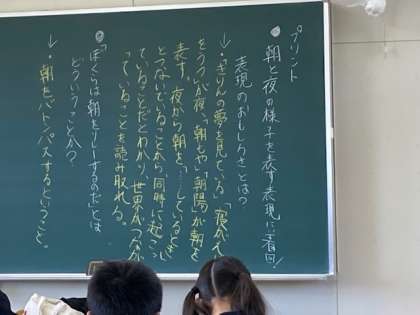 プリント
◎朝と夜の様子を表す表現に着目!
表現のおもしろさとは?
→・「きりんの夢を見ている」「寝がえり
をうつ」が夜、「朝もや」「朝陽」が朝を
表す。夜から朝を…しているとき
とつないでいることから同時に起こっ
ていることだとわかり、世界がつなが
っていることを読み取れる。
◎「ぼくらは朝をリレーするのだ」とは
どういうことか?
→・朝をバトンパスするということ。